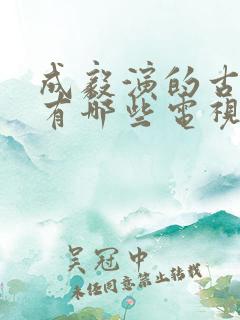 成毅演的古
有哪些電視
吴冠中
未经同意禁止转载